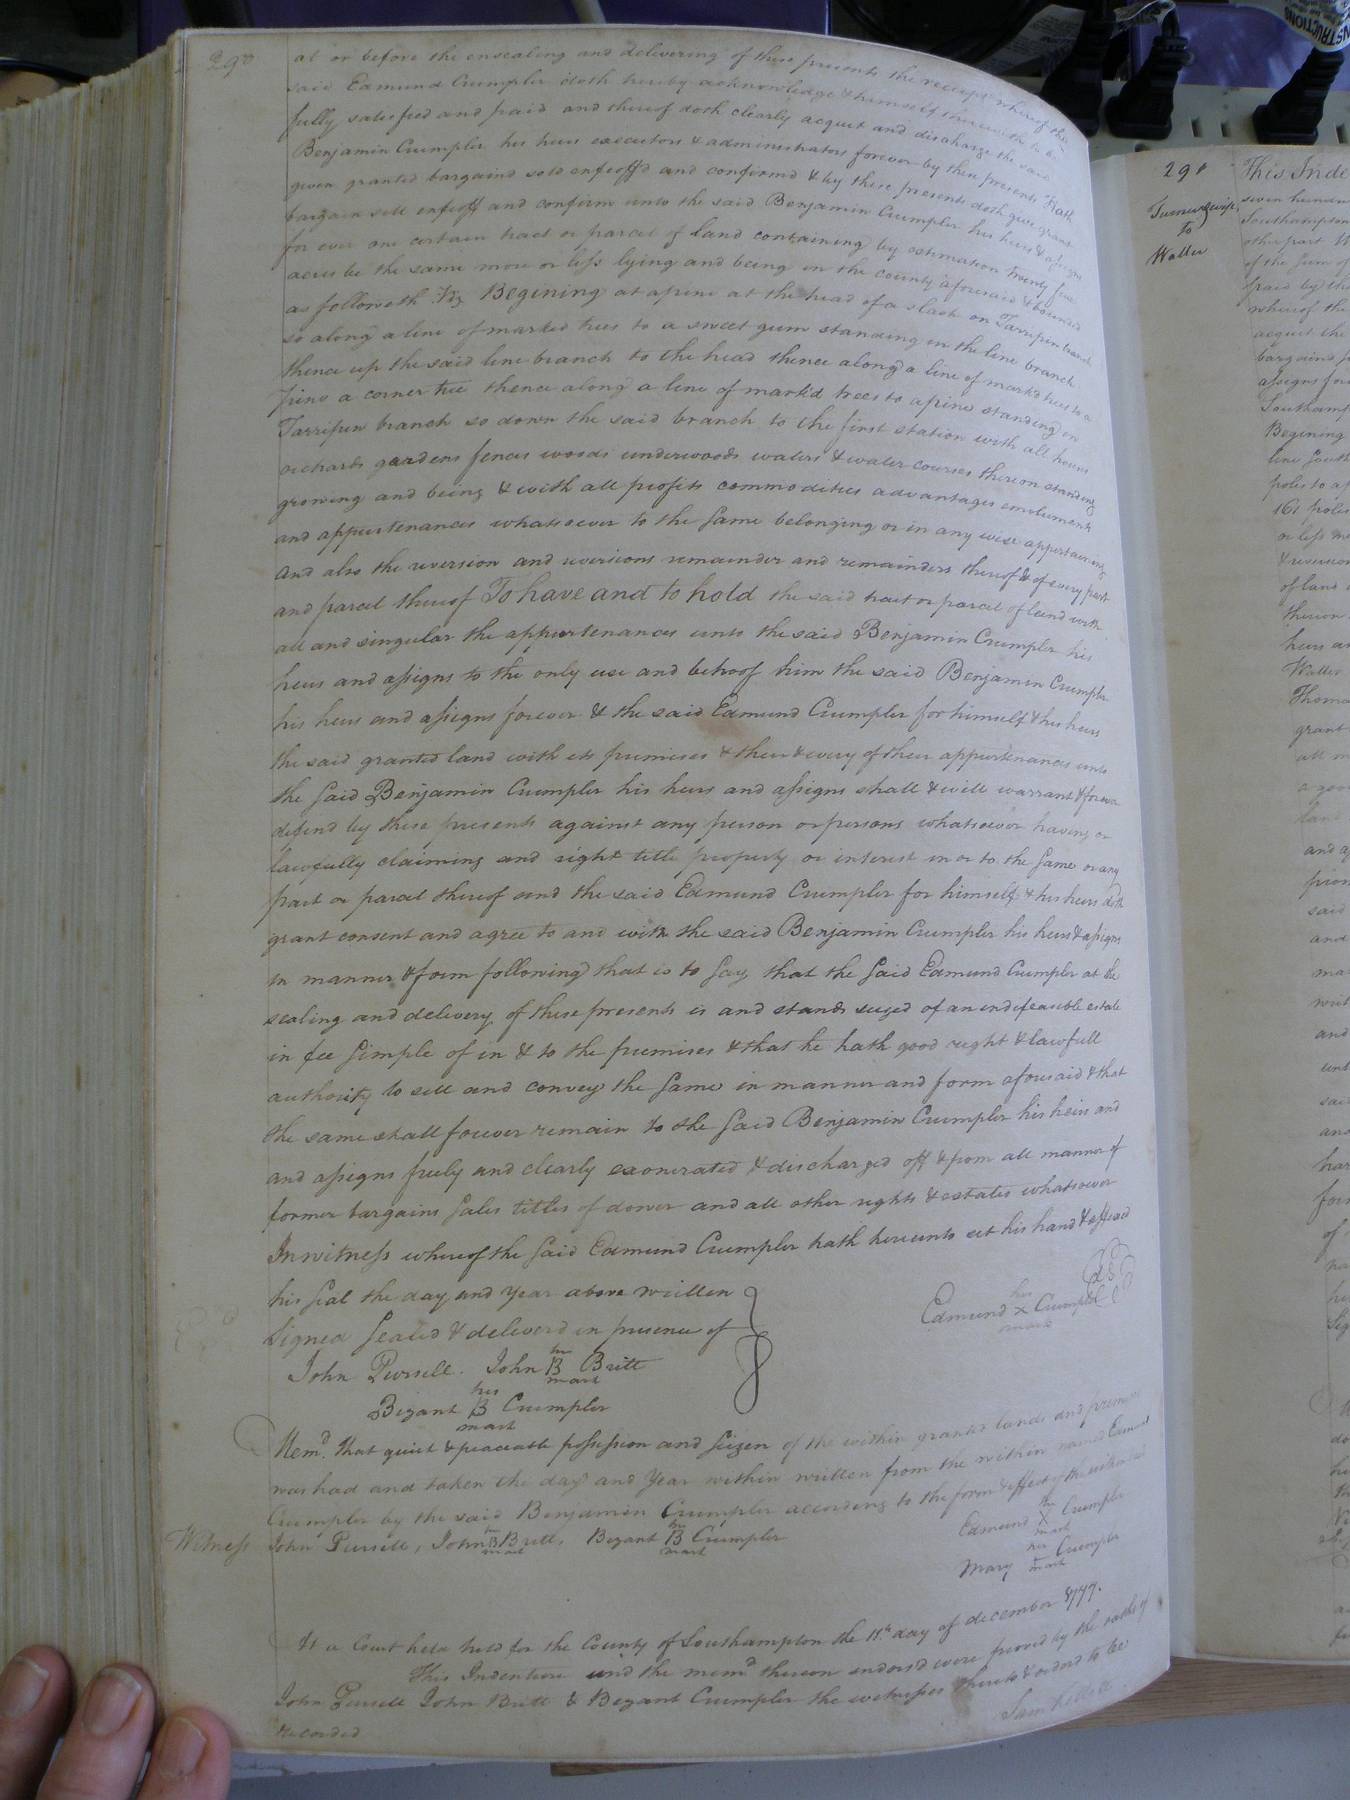 290
at or before the ensealing and delivering of these presents the receipt whereof the
said Edmund Crumpler doth hereby acknowledge & himself therewith to be
fully satesfied and paid and thereof doth clearly acquit and discharge the said
Benjamin Crumpler his heirs executors & administrators forever by these presents Hath
given granted bargaind sold enfeoff'd and confirmd & by these presents doth give grant
bargain sell enfeoff and confirm unto the said Benjamin Crumpler his heirs & assigns
for ever one certain tract or parcel of land containing by estimation twenty five
acres be the same more or less lying and being in the county aforesaid & bounded
as followeth Viz Begining at a pine at the head of a slash on Tarripin branch
so along a line of marked trees to a sweet gum standing in the line branch
thence up the said line branch to the head thence along a line of markd trees to a
pine a corner tree thence along a line of markd trees to a pine standing in
Tarripin branch so down the said branch to the first station with all houses
orchards gardens fences woods underwoods waters & water courses thereon standing
growing and being & with all profits commodities advantages emoluments
and appurtenances whatsoever to the same belonging or in any wise appertaining
And also the reversion and reversions remainder and remainders thereof & of every part
and parcel thereof To have and to hold the said tract or parcel of land with
all and singular the appurtenances unto the said Benjamin Crumpler his
heirs and assigns to the only use and behoof him the said Benjamin Crumpler
his heirs and assigns forever & the said Edmund Crumpler for himself & his heirs
the said granted land with its premises & their & every of their appurtenances unto
the said Benjamin Crumpler his heirs and assigns shall & will warrant & forever
defend by these presents against any person or persons whatsoever having or
lawfully claiming and right title property or interest in or to the same or any
part or parcel thereof and the said Edmund Crumpler for himself & his heirs doth
grant consent and agree to and with the said Benjamin Crumpler his heirs & assigns
in manner & form following that is to say that the said Edmund Crumpler at the
sealing and delivery of these presents is and stands seized of an indefeasible estate
in fee simple of in & to the premises & that he hath good right & lawfull
authority to sell and convey the same in manner and form aforesaid & that
the same shall forever remain to the said Benjamin Crumpler his heirs and
and assigns freely and clearly exonerated & discharged off & from all manner of
former bargains sales titles of dower and all other rights & estates whatsoever
In witness whereof the said Edmund Crumpler hath hereunto set his hand & affixed
his seal the day and year above written
Signed Sealed & deliverd in presence of
his
Edmund X Crumpler LS
mark
his
John Pursell. John B Britt
mark
his
Bizant B Crumpler
mark
Memd. that quiet & peaceable possession and seizen of the within granted lands and premises
was had and taken the day and year within written from the within named Edmund
Crumpler by the said Benjamin Crumpler according to the form & effect of the within deed
Witness John Pursell, John B Britt, Bizant B Crumpler
his mark his mark
his
Edmund X Crumpler
mark
his
Mary Crumpler
mark
At a Court held held for the County of Southampton the 11th day of december 1777.
This Indenture and the memd thereon endorsd were proved by the oaths of
John Pursell John Britt & Bizant Crumpler the witnesses thereto & orderd to be
recorded
Sam Kello
291
Turner & wife
to
Waller
This Inde
seven hundre
Southampton
other part W
of the sum of
paid by the
whereof the
acquit the
bargaind
assigns for
Southamp
Begining
line South
poles to a
161 poles
or less
& reversion
of land
thereon
heirs an
Waller
Thoma
grant
all m
a goo
land
and a
prem
said
and
ma
writ
and
unt
said
and
har
for
of